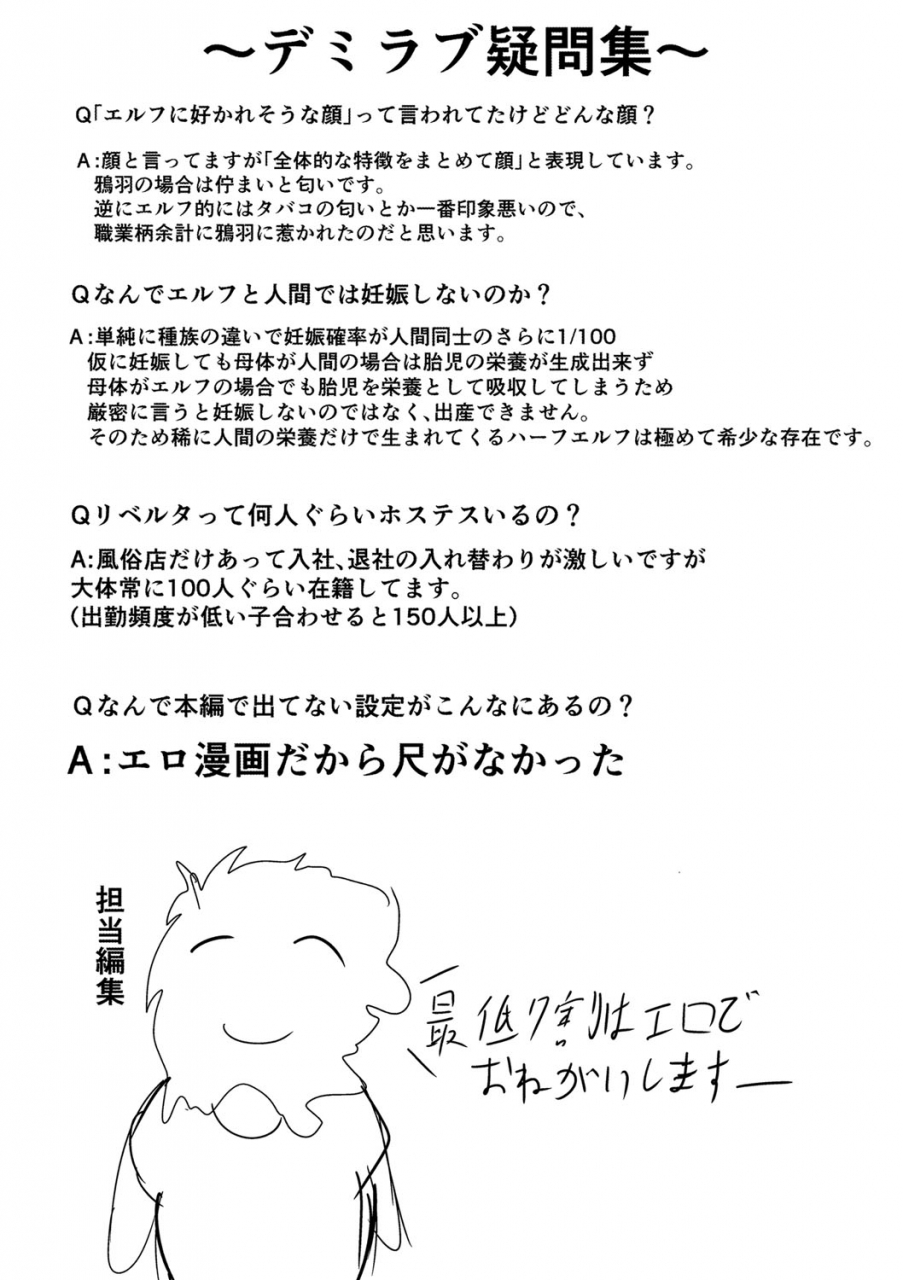 ～デミラブ疑問集～
Q「エルフに好かれそうな顔」って言われてたけどどんな顔？
A:顔と言ってますが「全体的な特徴をまとめて顔」と表現しています。
鴉羽の場合は佇まいと匂いです。
逆にエルフ的にはタバコの匂いとか一番印象悪いので、
職業柄余計に鴉羽に惹かれたのだと思います。
Qなんでエルフと人間では妊娠しないのか？
A:単純に種族の違いで妊娠確率が人間同士のさらに1/100
仮に妊娠しても母体が人間の場合は胎児の栄養が生成出来ず
母体がエルフの場合でも胎児を栄養として吸収してしまうため
厳密に言うと妊娠しないのではなく、出産できません。
そのため稀に人間の栄養だけで生まれてくるハーフエルフは極めて希少な存在です。
Qリベルタって何人ぐらいホステスいるの？
A:風俗店だけあって入社、退社の入れ替わりが激しいですが
大体常に100人ぐらい在籍してます。
(出勤頻度が低い子合わせると150人以上)
Qなんで本編で出てない設定がこんなにあるの？
A:エロ漫画だから尺がなかった
担当編集
最低7割はエロで
おねがいしますー